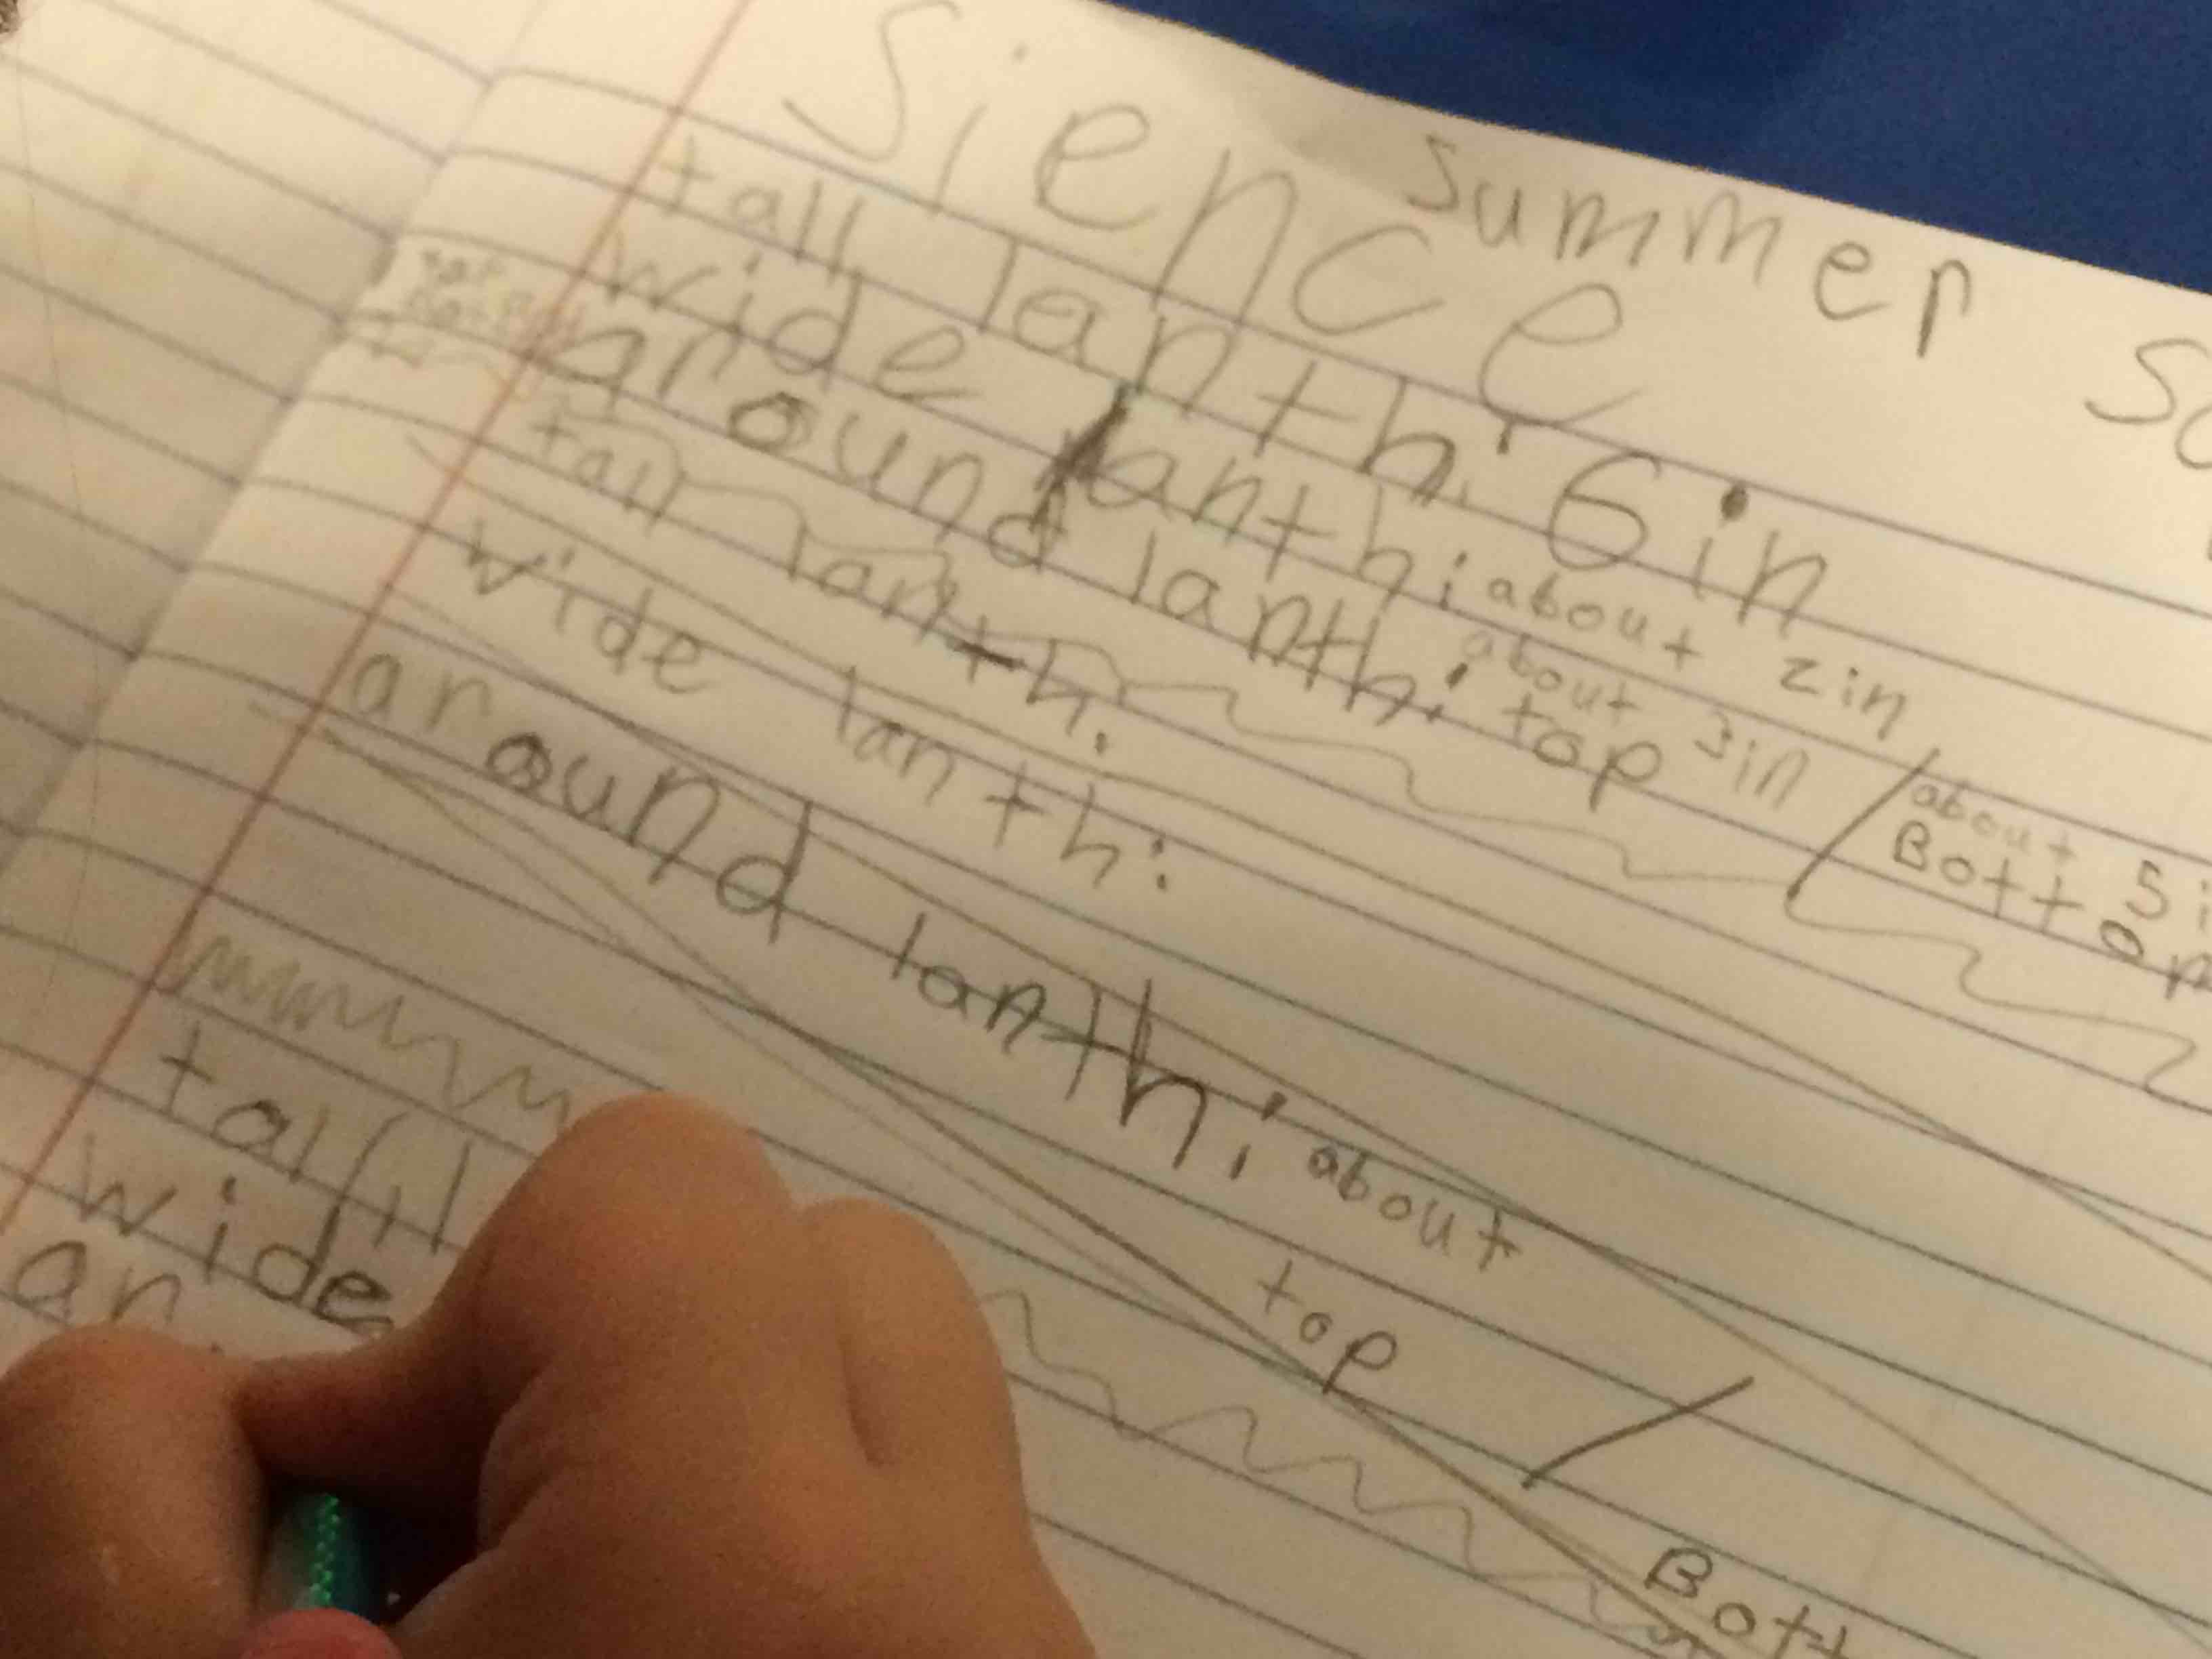 Sience
summer
tall lanth: 6in
wide lanth: about 2in
around lanth: about 3in top / about 5i Bottom
tall lanth:
wide lanth:
around lanth: about top / Bott
tall
wide
ar